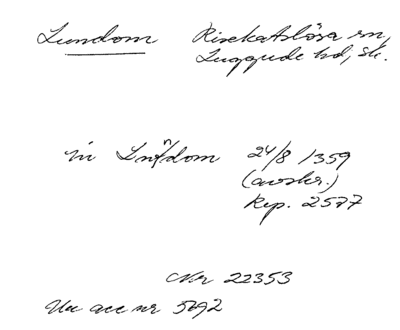 Lundom Risekatslösa sn,
Luggude hd, Sk.
in Lundom 24/8 1359
(avskr.)
Rep. 2577
Nr 22353
Vec acc nr 5692